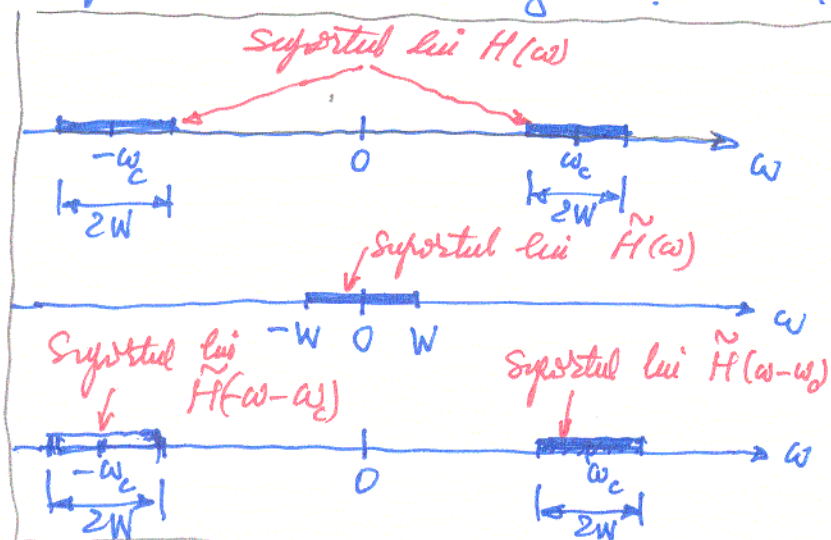 suportul lui H(ω)
-ω_c 0 ω_c ω
2W 2W
suportul lui H̃(ω)
-W 0 W ω
Suportul lui H̃(-ω-ω_c)
Suportul lui H̃(ω-ω_c)
-ω_c 0 ω_c ω
2W 2W